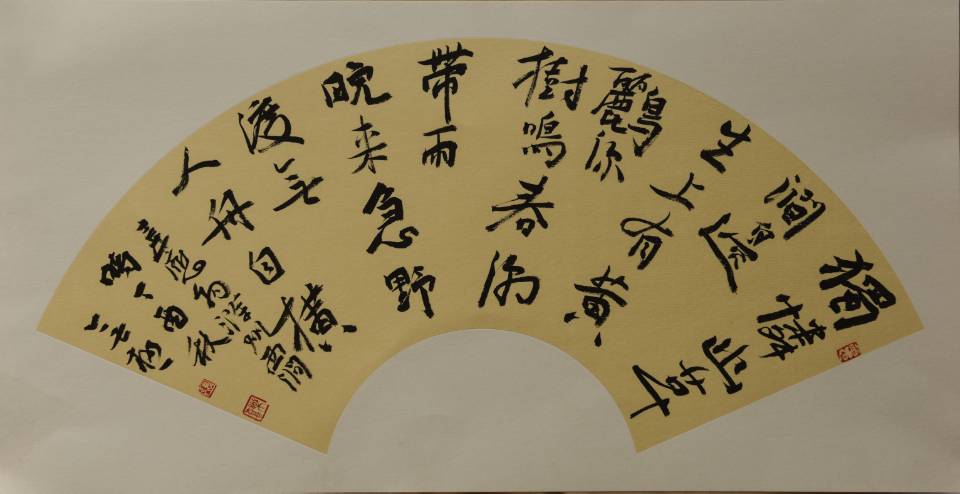 獨憐幽草
澗邊
生上有黃
鸝深
樹鳴春潮
帶雨
晚来急野
渡無
人舟自橫
韋應物滁州西澗